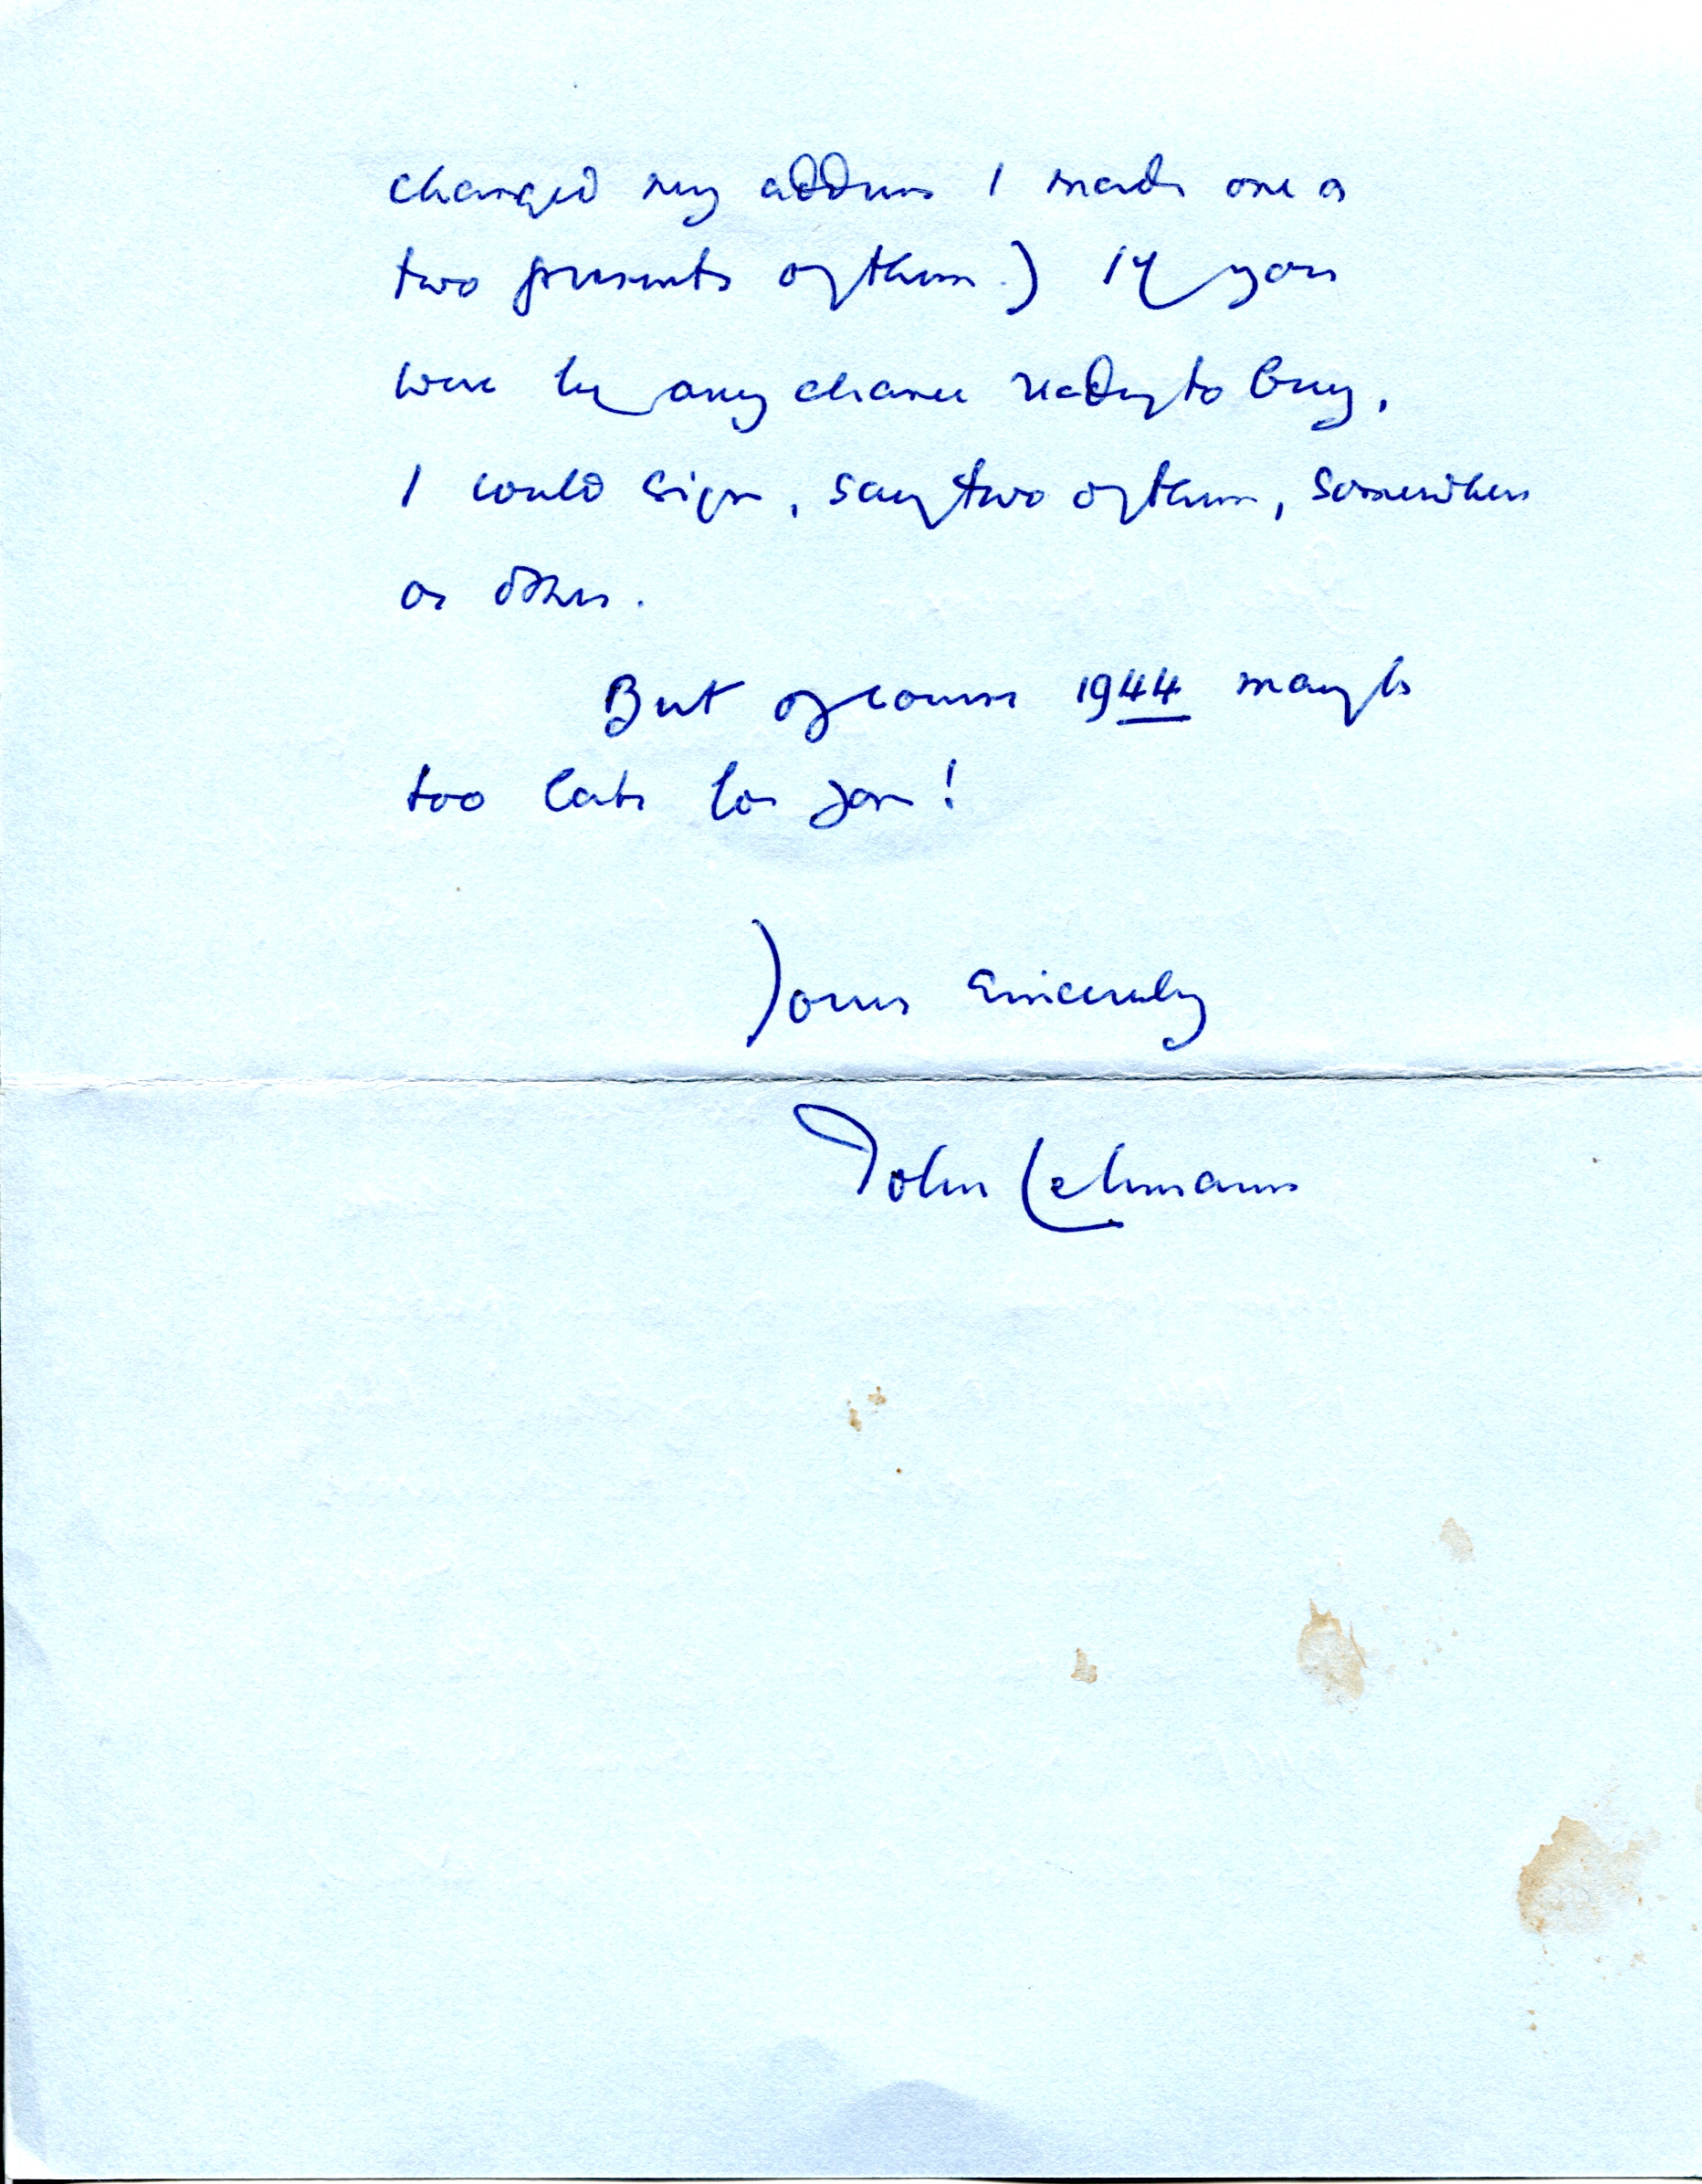 changed my address I made one or
two presents of them.) If you
were by any chance ready to buy,
I could sign, say two of them, somewhere
or other.
But of course 1944 may be
too late for you!
Yours sincerely
John Lehmann